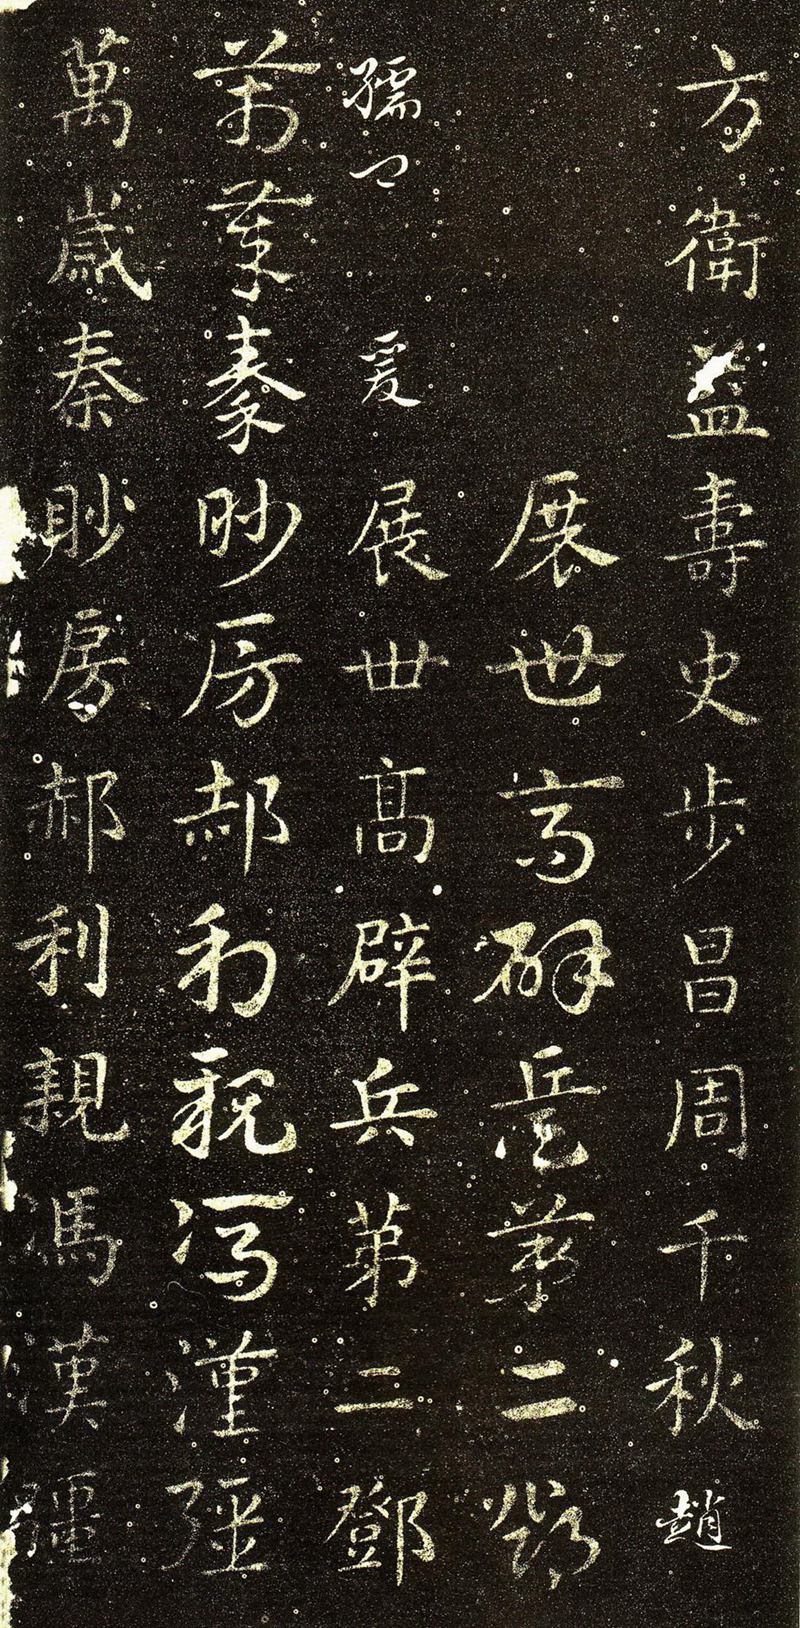 方衛益壽史步昌周千秋趙
展世高辟兵第二鄧
孺卿爰展世髙辟兵第二鄧
萬歲秦眇房郝利親馮漢彊
萬歲秦眇房郝利親馮漢彊